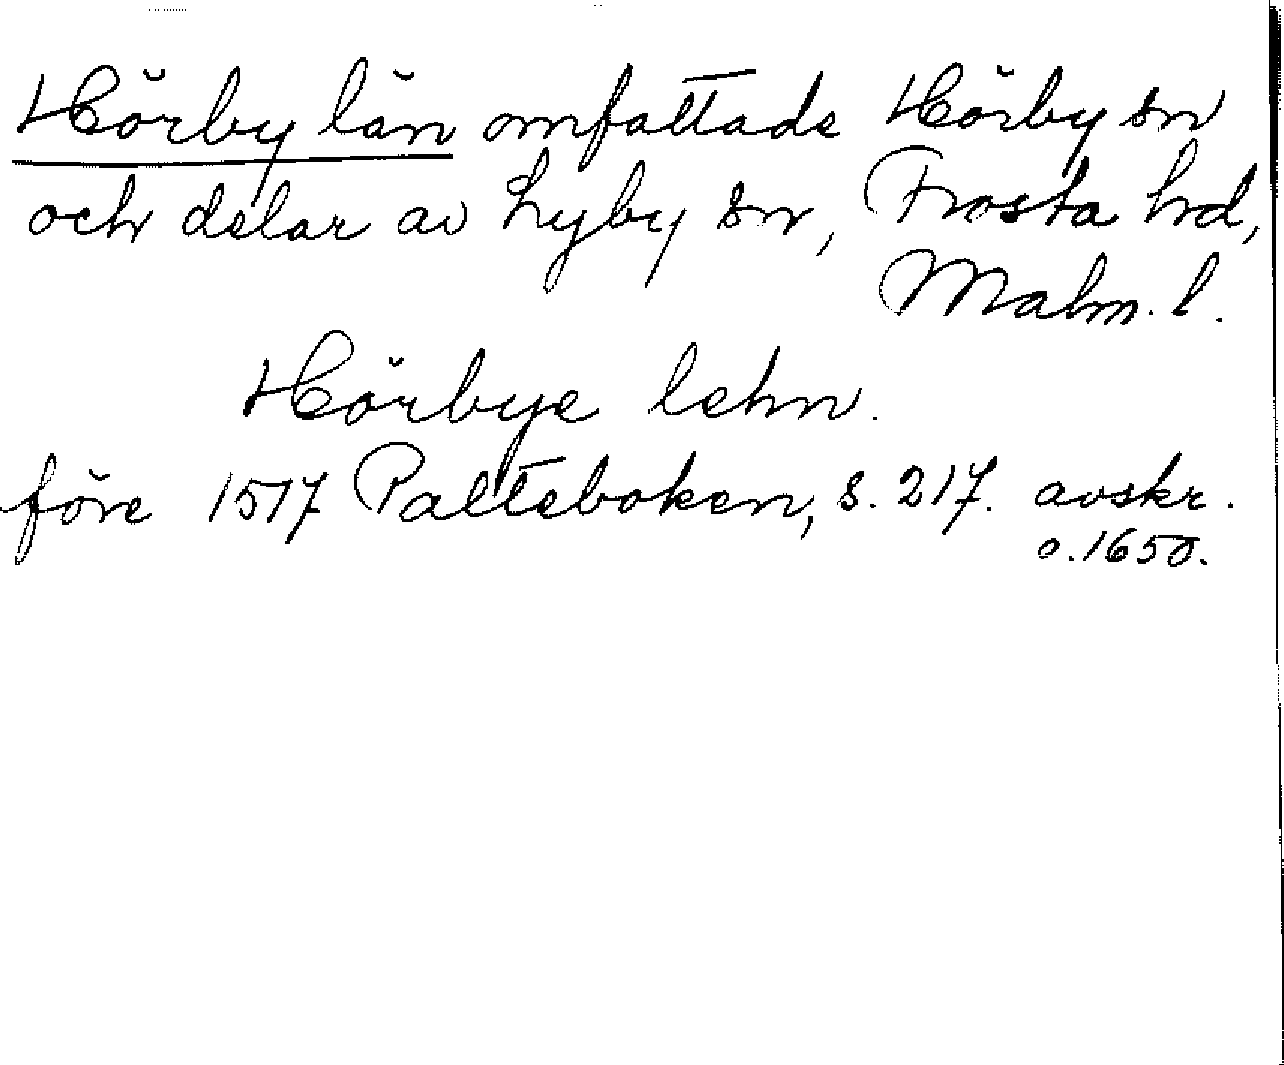 Hörby län omfattade Hörby sn
och delar av Lyby sn, Frosta hrd,
Malm. l.
Hörbye lehn.
före 1517 Palteboken, s. 217. avskr.
o. 1650.